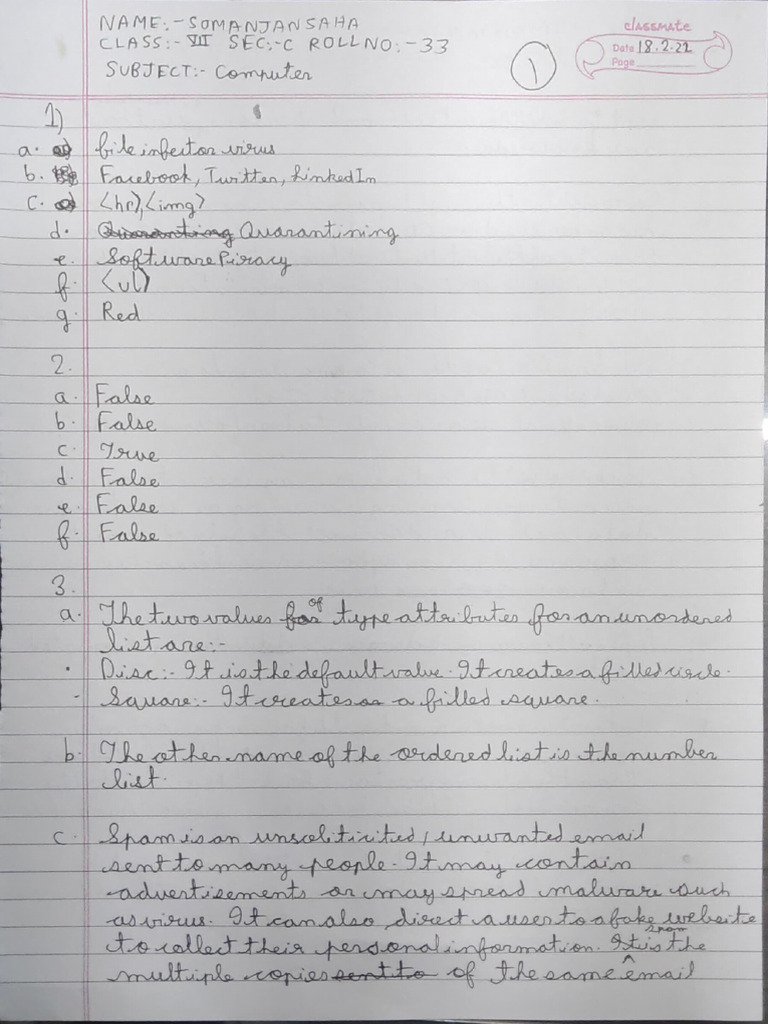 NAME:- SOMANJAN SAHA
CLASS:- VII SEC:-C ROLL NO:-33
SUBJECT:- Computer
classmate
Date 18.2.22
Page
1
1)
a. file infector virus
b. Facebook, Twitter, LinkedIn
c. <hr>,<img>
d. Quarantining
e. Software Piracy
f. <ul>
g. Red
2.
a. False
b. False
c. True
d. False
e. False
f. False
3.
a. The two values of type attributes for an unordered
list are:-
Disc:- It is the default value. It creates a filled circle.
Square:- It creates a filled square.
b. The other name of the ordered list is the number
list.
c. Spam is an unsoliticited/unwanted email
sent to many people. It may contain
advertisements or may spread malware such
as virus. It can also direct a user to a fake website
to collect their personal information. It is the
multiple copies of the same spam email